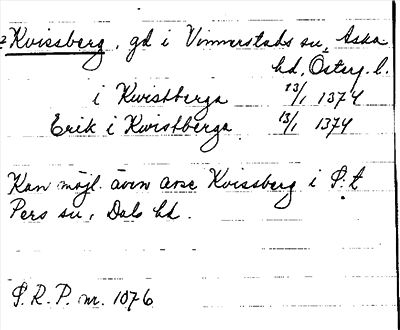 ? Kvissberg, gd i Vinnerstads sn, Aska
hd, Österg. l.
i Kwistberga 13/1 1374
Erik i Kwistberga 13/1 1374
Kan möjl. även avse Kvissberg i S:t
Pers sn, Dals hd.
S. R. P. nr. 1076